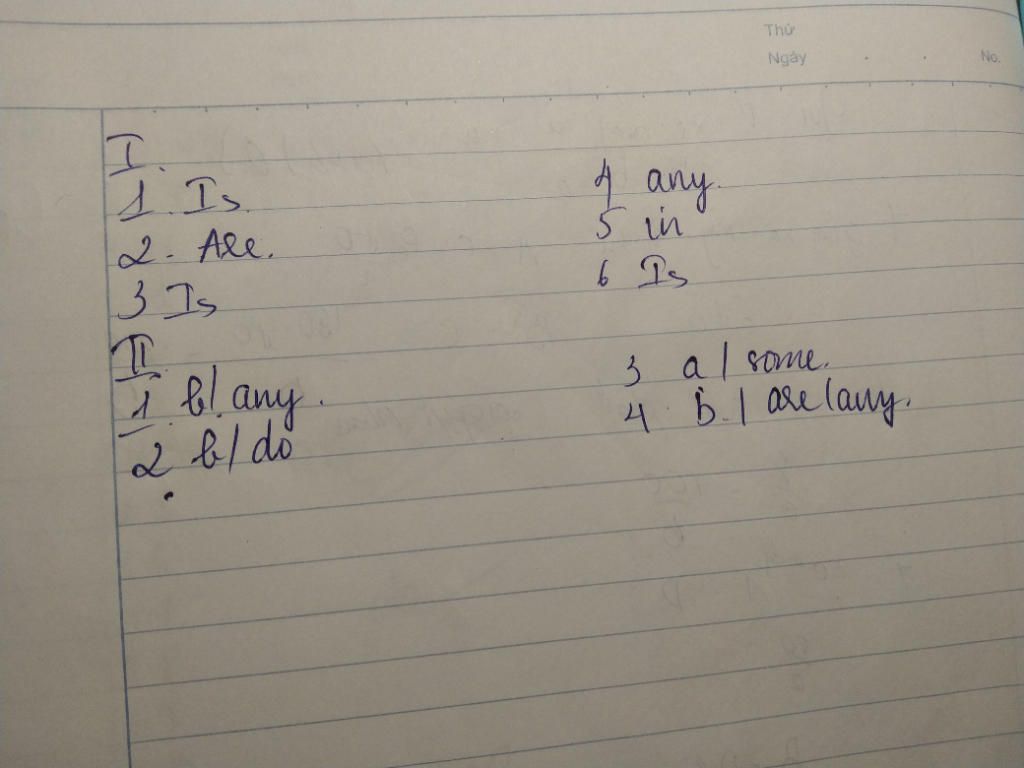 Thứ
Ngày
No.
I.
1. Is
2. Are.
3 Is
4 any.
5 in
6 Is
II
1 b/. any.
2 b/ do
3 a / some.
4 b. / are/any.